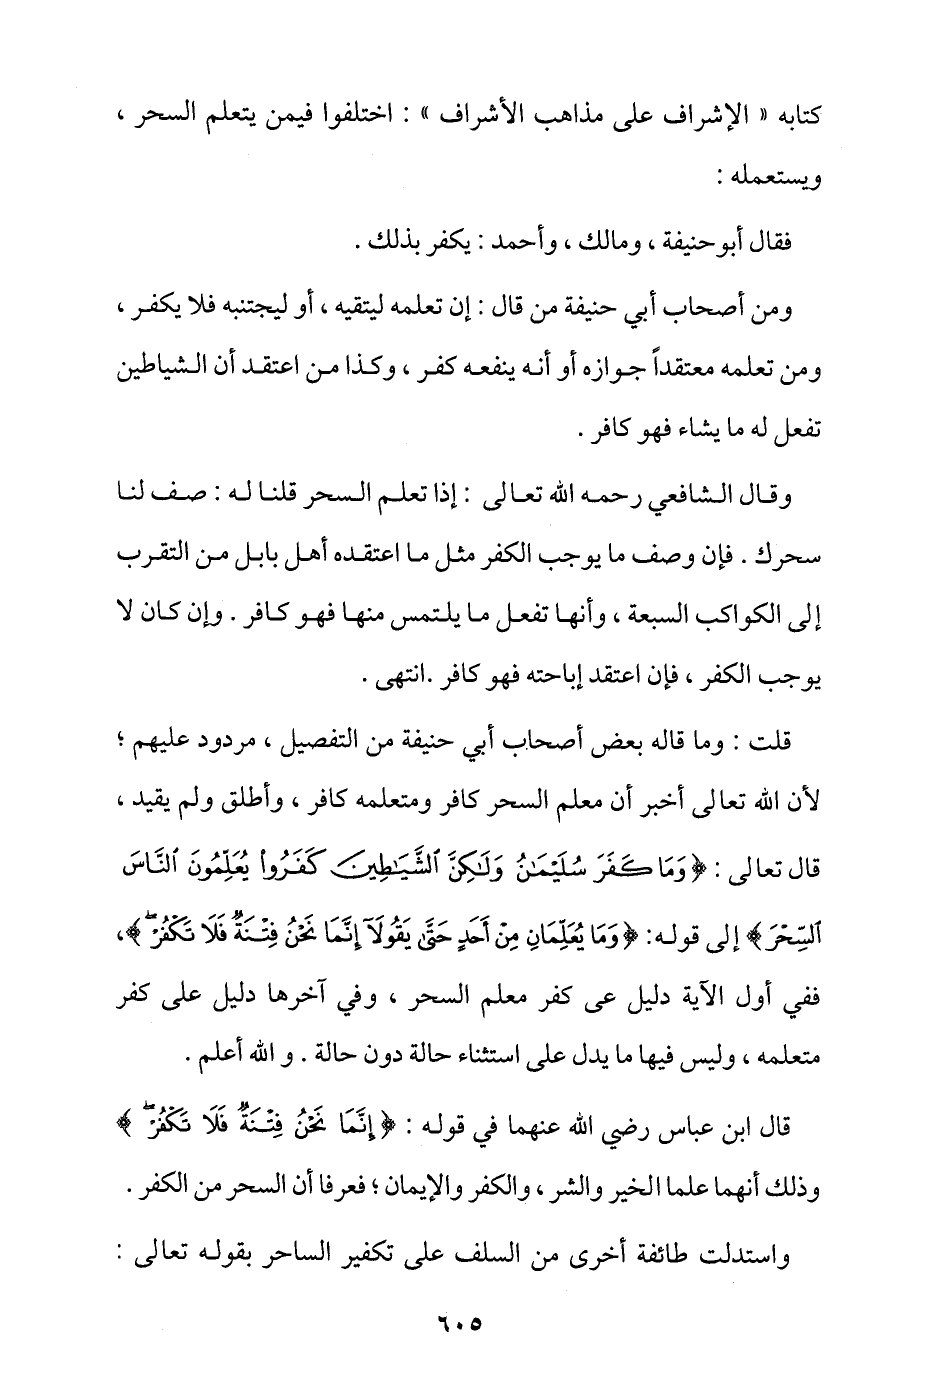 كتابه « الإشراف على مذاهب الأشراف » : اختلفوا فيمن يتعلم السحر ،
ويستعمله :
فقال أبو حنيفة ، ومالك ، وأحمد : يكفر بذلك .
ومن أصحاب أبي حنيفة من قال : إن تعلمه ليتقيه ، أو ليجتنبه فلا يكفر ،
ومن تعلمه معتقداً جوازه أو أنه ينفعه كفر ، وكذا من اعتقد أن الشياطين
تفعل له ما يشاء فهو كافر .
وقال الشافعي رحمه الله تعالى : إذا تعلم السحر قلنا له : صف لنا
سحرك . فإن وصف ما يوجب الكفر مثل ما اعتقده أهل بابل من التقرب
إلى الكواكب السبعة ، وأنها تفعل ما يلتمس منها فهو كافر . وإن كان لا
يوجب الكفر ، فإن اعتقد إباحته فهو كافر .انتهى .
قلت : وما قاله بعض أصحاب أبي حنيفة من التفصيل ، مردود عليهم ؛
لأن الله تعالى أخبر أن معلم السحر كافر ومتعلمه كافر ، وأطلق ولم يقيد ،
قال تعالى : ﴿ وَمَا كَفَرَ سُلَيْمَٰنُ وَلَٰكِنَّ ٱلشَّيَٰطِينَ كَفَرُواْ يُعَلِّمُونَ ٱلنَّاسَ
ٱلسِّحْرَ ﴾ إلى قوله: ﴿ وَمَا يُعَلِّمَانِ مِنْ أَحَدٍ حَتَّىٰ يَقُولَآ إِنَّمَا نَحْنُ فِتْنَةٌ فَلَا تَكْفُرْ ۖ ﴾،
ففي أول الآية دليل عى كفر معلم السحر ، وفي آخرها دليل على كفر
متعلمه ، وليس فيها ما يدل على استثناء حالة دون حالة . و الله أعلم .
قال ابن عباس رضي الله عنهما في قوله : ﴿ إِنَّمَا نَحْنُ فِتْنَةٌ فَلَا تَكْفُرْ ۖ ﴾
وذلك أنهما علما الخير والشر ، والكفر والإيمان ؛ فعرفا أن السحر من الكفر .
واستدلت طائفة أخرى من السلف على تكفير الساحر بقوله تعالى :
٦٠٥